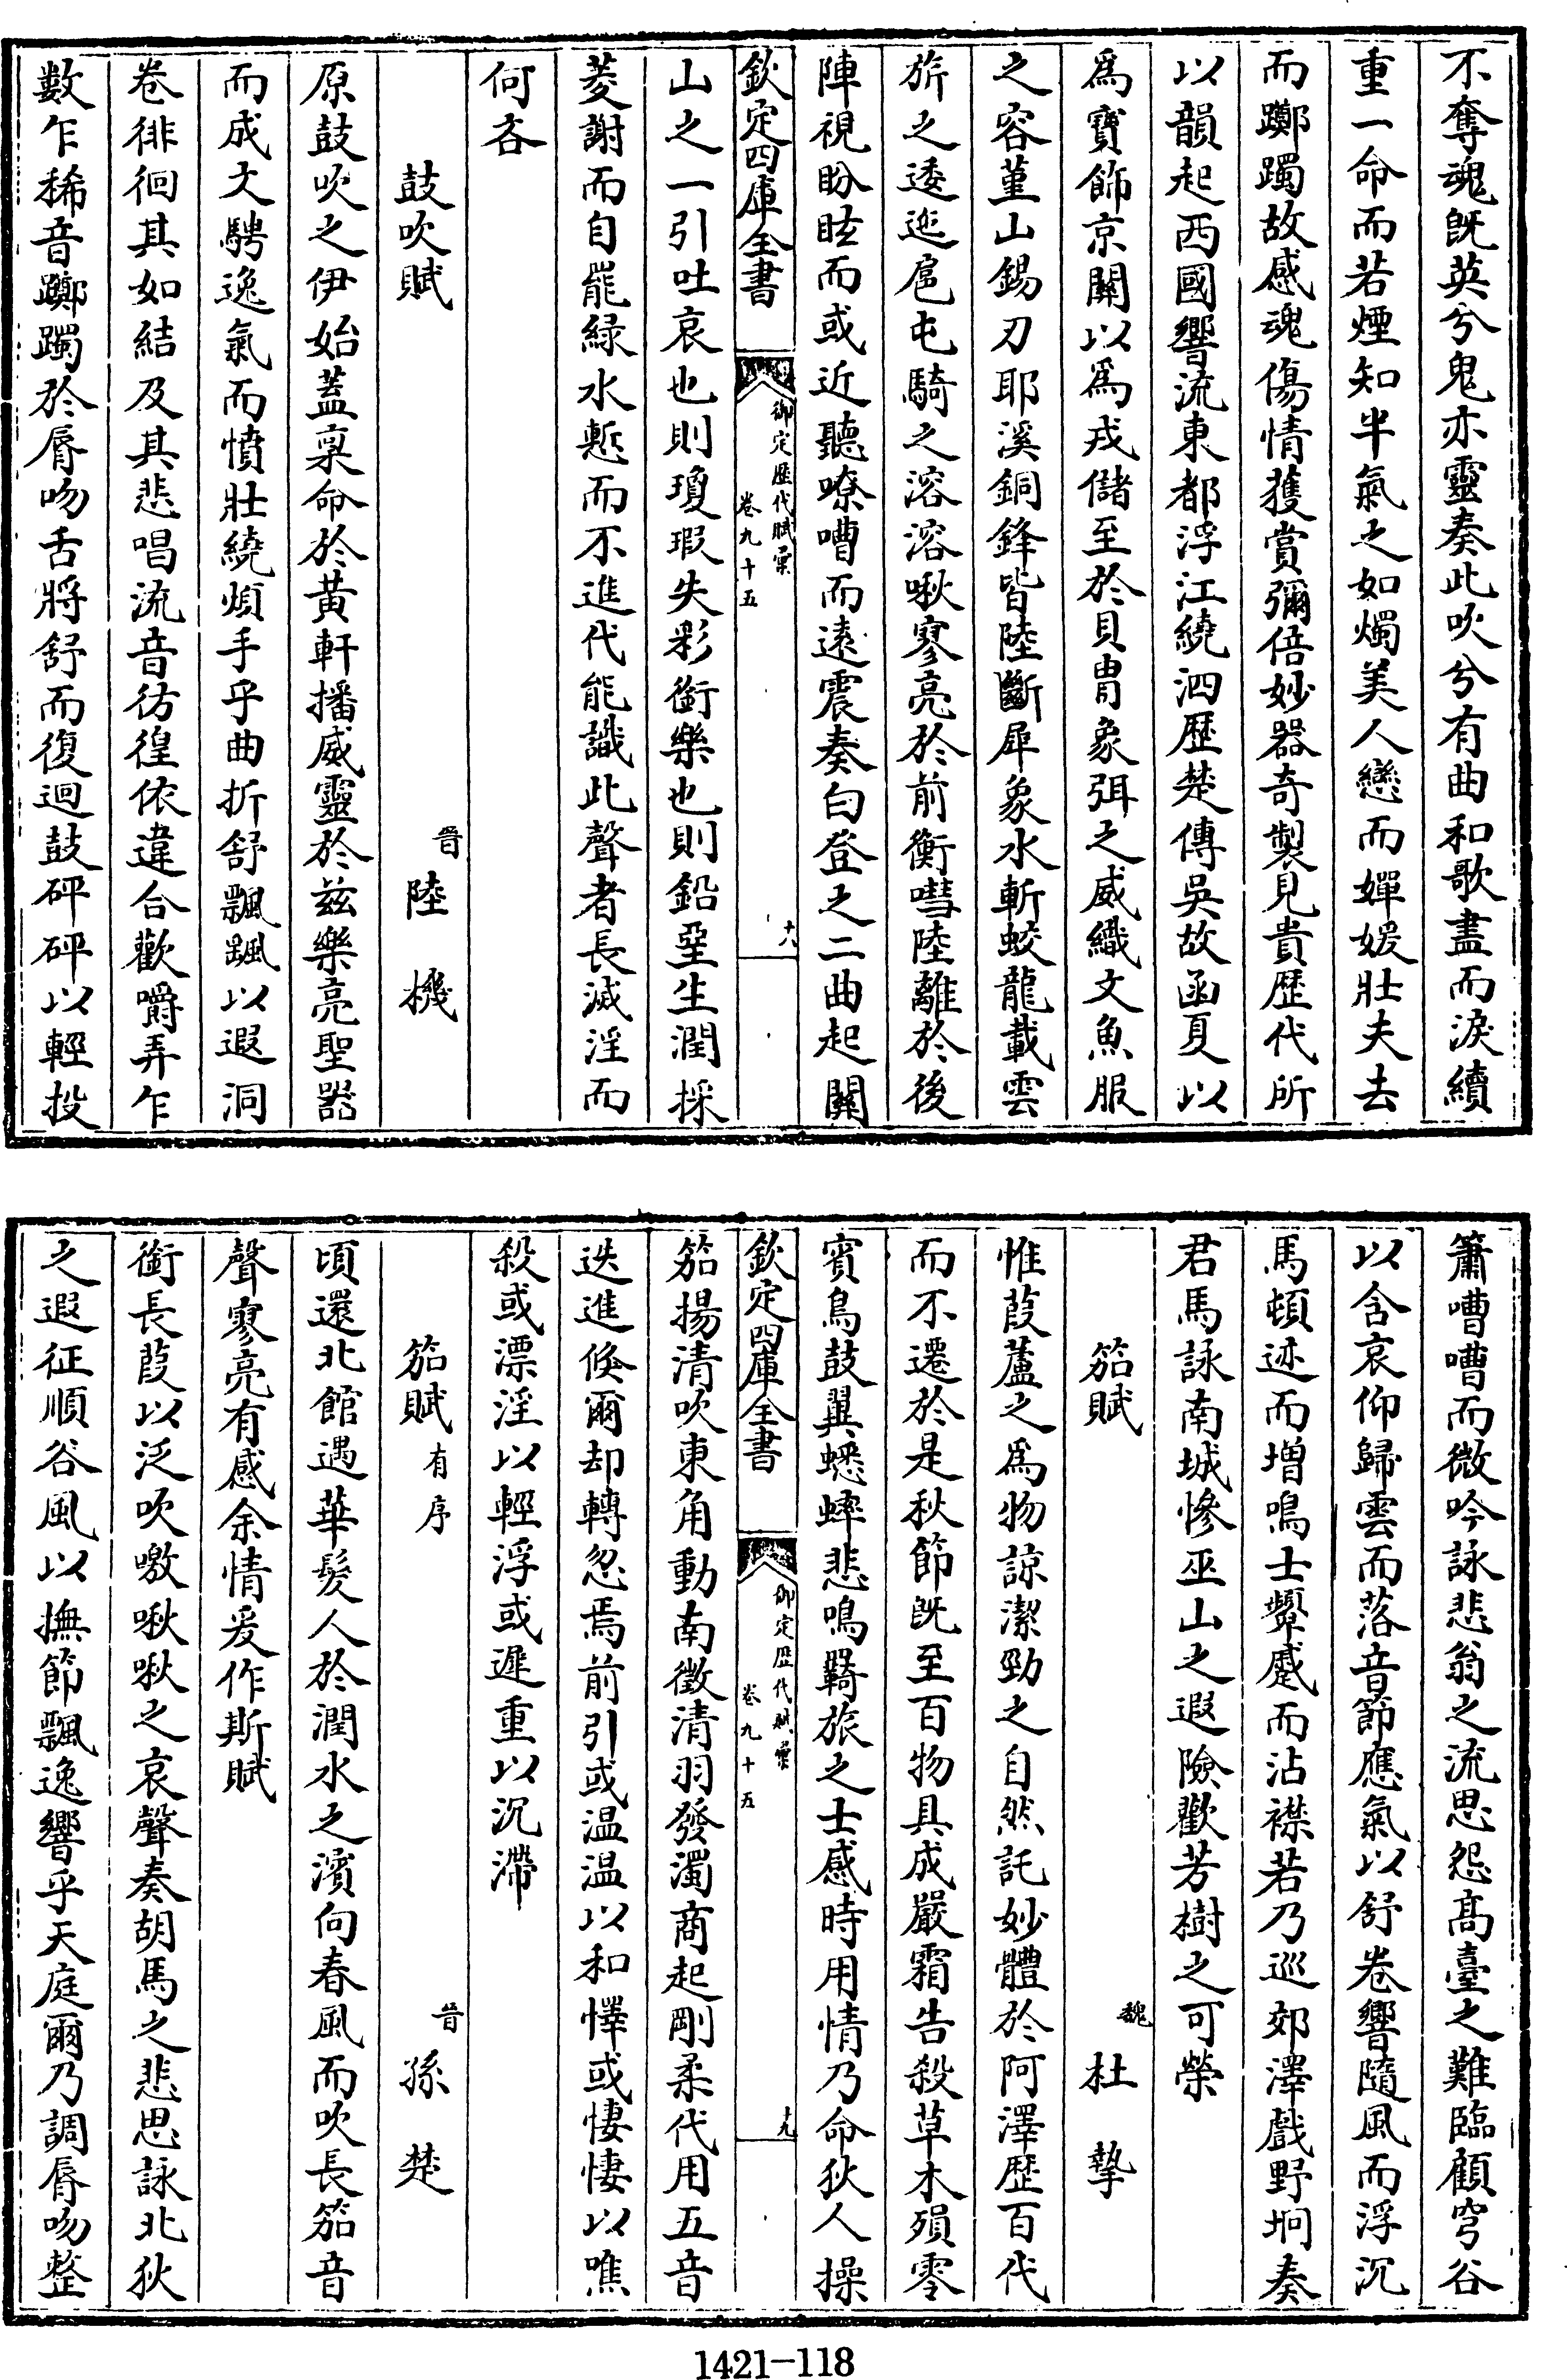 不奪魂既英兮鬼亦靈奏此吹兮有曲和歌盡而淚續
重一命而若煙知半氣之如燭美人戀而嬋媛壯夫去
而躑躅故感魂傷情獲賞彌倍妙器奇製見貴歴代所
以韻起西國響流東都浮江繞泗歴楚傳吳故函夏以
為寶飾京關以為戎儲至於貝胄象弭之威織文魚服
之容菫山錫刃耶溪銅鋒皆陸斷犀象水斬蛟龍載雲
旂之逶迤扈屯騎之溶溶啾寥亮於前衡嘒陸離於後
陣視盼眩而或近聽嘹嘈而遠震奏白登之二曲起關
欽定四庫全書
御定歴代賦彙
卷九十五
十八
山之一引吐哀也則瓊瑕失彩銜樂也則鉛堊生潤採
菱謝而自罷緑水慙而不進代能識此聲者長滅淫而
何吝
鼓吹賦
晉陸機
原鼓吹之伊始蓋稟命於黃軒播威靈於兹樂亮聖器
而成文騁逸氣而憤壯繞煩手乎曲折舒飄颻以遐洞
卷徘徊其如結及其悲唱流音彷徨依違合歡嚼弄乍
數乍稀音躑躅於脣吻舌將舒而復迴鼓砰砰以輕投
簫嘈嘈而微吟詠悲翁之流思怨髙臺之難臨顧穹谷
以含哀仰歸雲而落音節應氣以舒卷響隨風而浮沉
馬頓迹而增鳴士顰蹙而沾襟若乃巡郊澤戲野坰奏
君馬詠南城慘巫山之遐險歡芳樹之可榮
笳賦
魏杜摯
惟葭蘆之為物諒潔勁之自然託妙體於阿澤歴百代
而不遷於是秋節既至百物具成嚴霜告殺草木殞零
賓鳥鼓翼蟋蟀悲鳴羇旅之士感時用情乃命狄人操
欽定四庫全書
御定歴代賦彙
卷九十五
十九
笳揚清吹東角動南徵清羽發濁商起剛柔代用五音
迭進倏爾却轉忽焉前引或温温以和懌或悽悽以噍
殺或漂淫以輕浮或遲重以沉滯
笳賦有序
晉孫楚
頃還北館遇華髮人於潤水之濱向春風而吹長笳音
聲寥亮有感余情爰作斯賦
銜長葭以泛吹噭啾啾之哀聲奏胡馬之悲思詠北狄
之遐征順谷風以撫節飄逸響乎天庭爾乃調脣吻整
1421-118